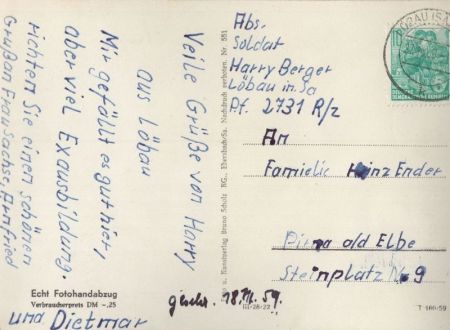 Veile Grüße von Harry
aus Löbau
Mir gefällt es gut hier,
aber viel Exausbildung.
richten Sie einen schönen
Grußan Frau Sachse, Annfried
und Dietmar
Echt Fotohandabzug
Verbraucherpreis DM -,25
geschr. 18.11.59.
III-28-22
u. Kunstverlag Bruno Scholz KG., Ebersbach/Sa. Nachdruck verboten. Nr. 551
Abs-
Soldat
Harry Berger
Löbau in. Sa
Pf. 2731 R/z
LÖBAU (SA
10
DEUTSCHE
An
Familie Heinz Ender
Pirna a/d Elbe
Steinplatz N. 9
T 160/59